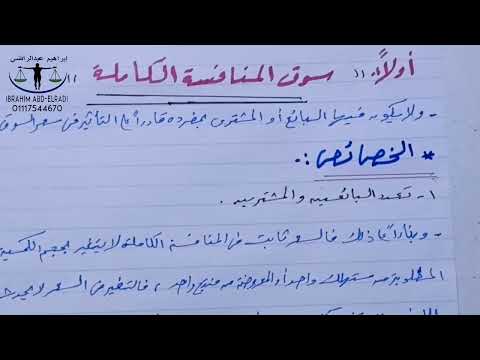 إبراهيم عبدالراضي
IBRAHIM ABD-ELRADI
01117544670
أولاً: " سوق المنافسة الكاملة "
- ولا يكون فيها البائع أو المشترى بمفرده قادراً على التأثير فى سعر السوق
* الخصائص :-
١- تعدد البائعين والمشتريين .
- وبناءً على ذلك فالسعر ثابت فى المنافسة الكاملة لا يتغير بحجم الكمية
المطلوبة من مستهلك واحد أو المعروضة من منتج واحد ، فالتغير فى السعر لا يحدث